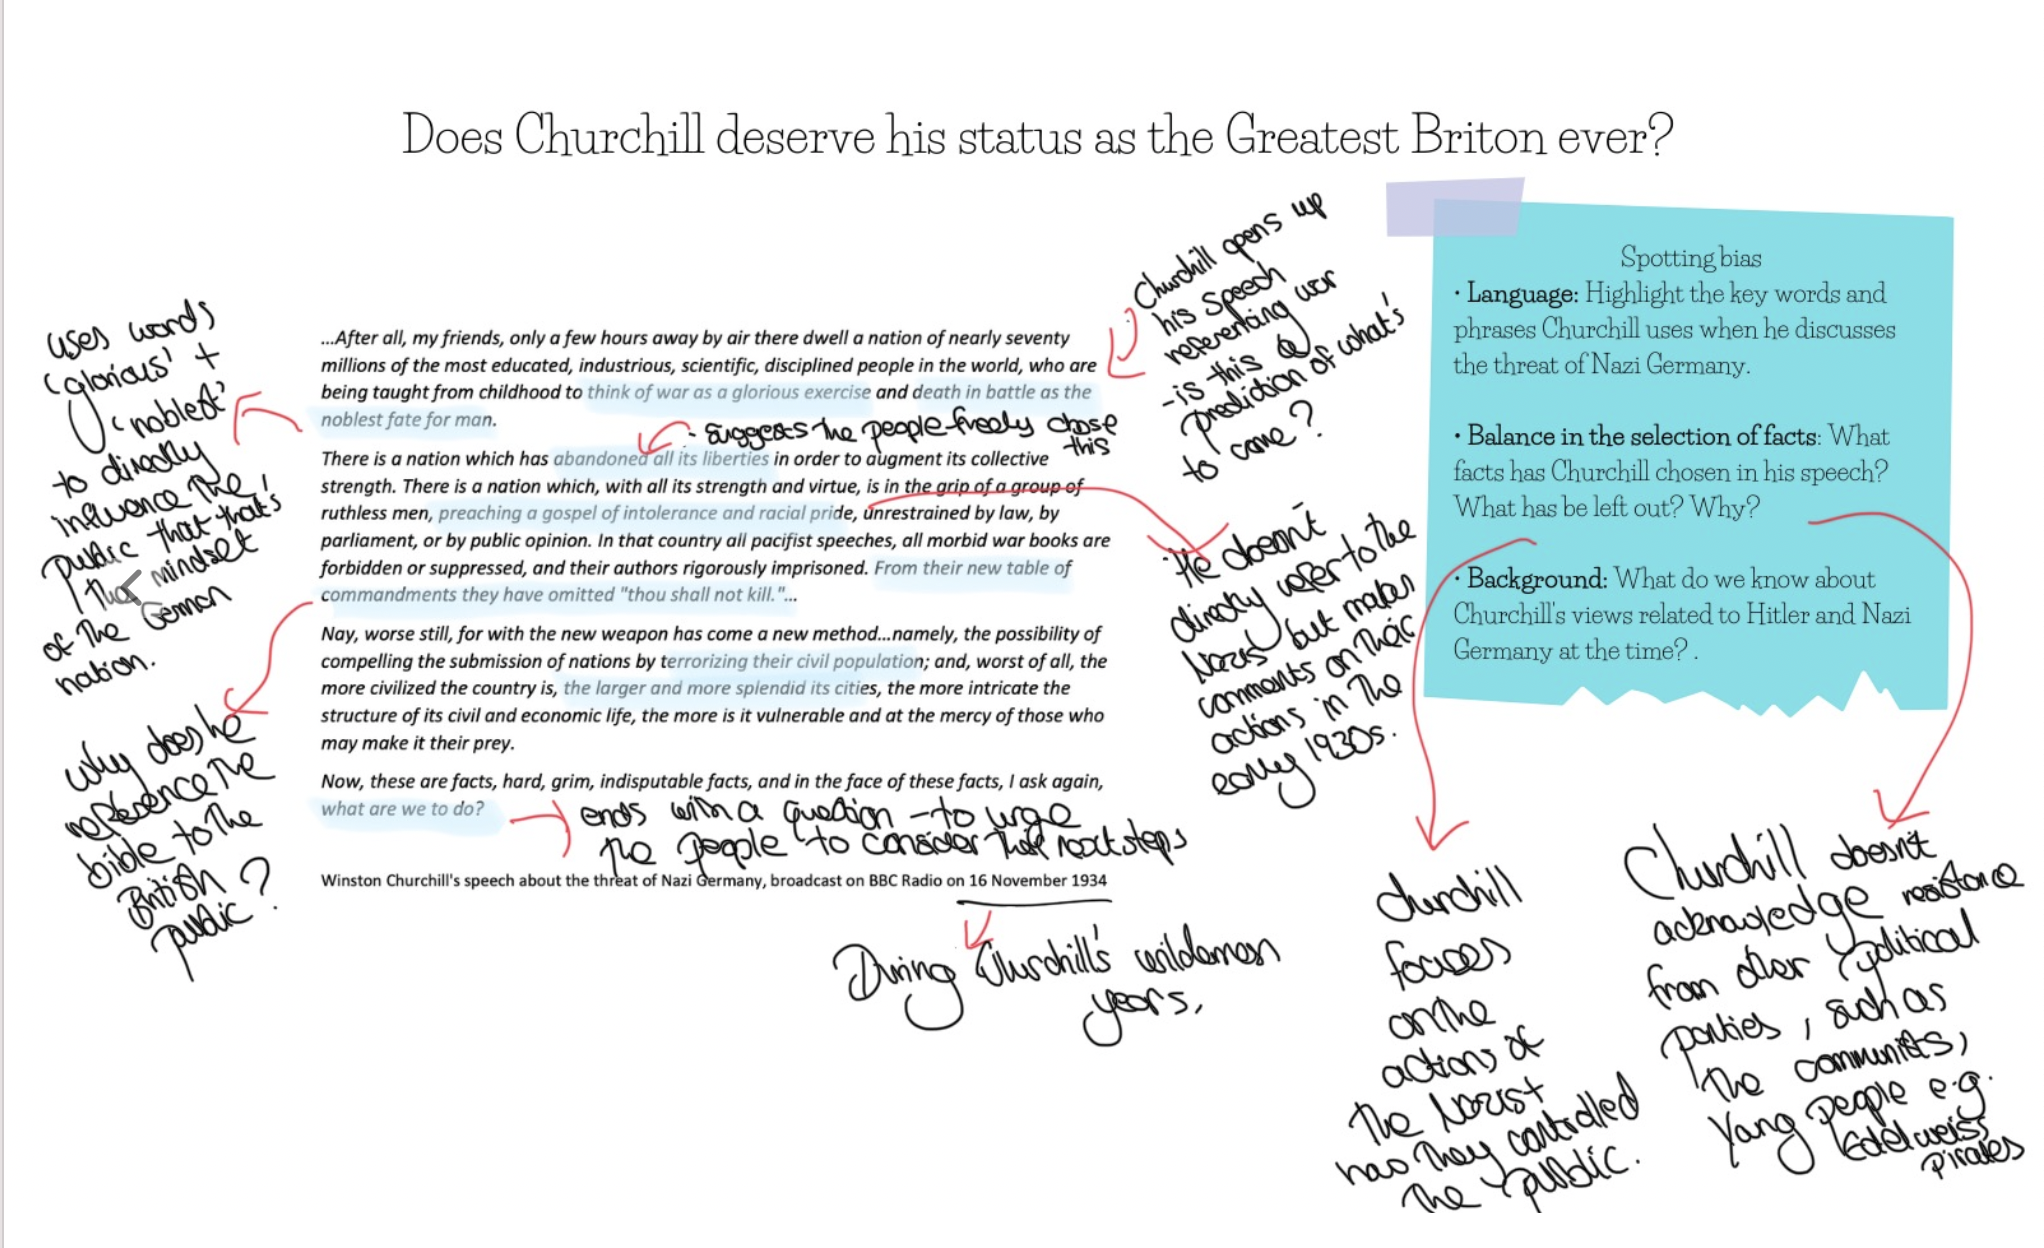 Does Churchill deserve his status as the Greatest Briton ever?
uses words
'glorious' +
'noblest'
to directly
influence the
public that that's
the mindset
of the German
nation.
why does he
reference the
bible to the
British
public?
...After all, my friends, only a few hours away by air there dwell a nation of nearly seventy
millions of the most educated, industrious, scientific, disciplined people in the world, who are
being taught from childhood to think of war as a glorious exercise and death in battle as the
noblest fate for man.
- suggests the people freely chose
this
There is a nation which has abandoned all its liberties in order to augment its collective
strength. There is a nation which, with all its strength and virtue, is in the grip of a group of
ruthless men, preaching a gospel of intolerance and racial pride, unrestrained by law, by
parliament, or by public opinion. In that country all pacifist speeches, all morbid war books are
forbidden or suppressed, and their authors rigorously imprisoned. From their new table of
commandments they have omitted "thou shall not kill."...
Nay, worse still, for with the new weapon has come a new method...namely, the possibility of
compelling the submission of nations by terrorizing their civil population; and, worst of all, the
more civilized the country is, the larger and more splendid its cities, the more intricate the
structure of its civil and economic life, the more is it vulnerable and at the mercy of those who
may make it their prey.
Now, these are facts, hard, grim, indisputable facts, and in the face of these facts, I ask again,
what are we to do?
ends with a question - to urge
the people to consider their next steps
Winston Churchill's speech about the threat of Nazi Germany, broadcast on BBC Radio on 16 November 1934
During Churchill's wilderness
years.
Churchill opens up
his speech
referencing war
- is this a
prediction of what's
to come?
He doesn't
directly refer to the
Nazis but makes
comments on their
actions in the
early 1930s.
Spotting bias
• Language: Highlight the key words and
phrases Churchill uses when he discusses
the threat of Nazi Germany.
• Balance in the selection of facts: What
facts has Churchill chosen in his speech?
What has be left out? Why?
• Background: What do we know about
Churchill's views related to Hitler and Nazi
Germany at the time? .
Churchill
focuses
on the
actions of
the Nazis +
how they controlled
the public.
Churchill doesn't
acknowledge resistance
from other political
parties, such as
the communists,
Young people e.g.
Edelweiss
Pirates